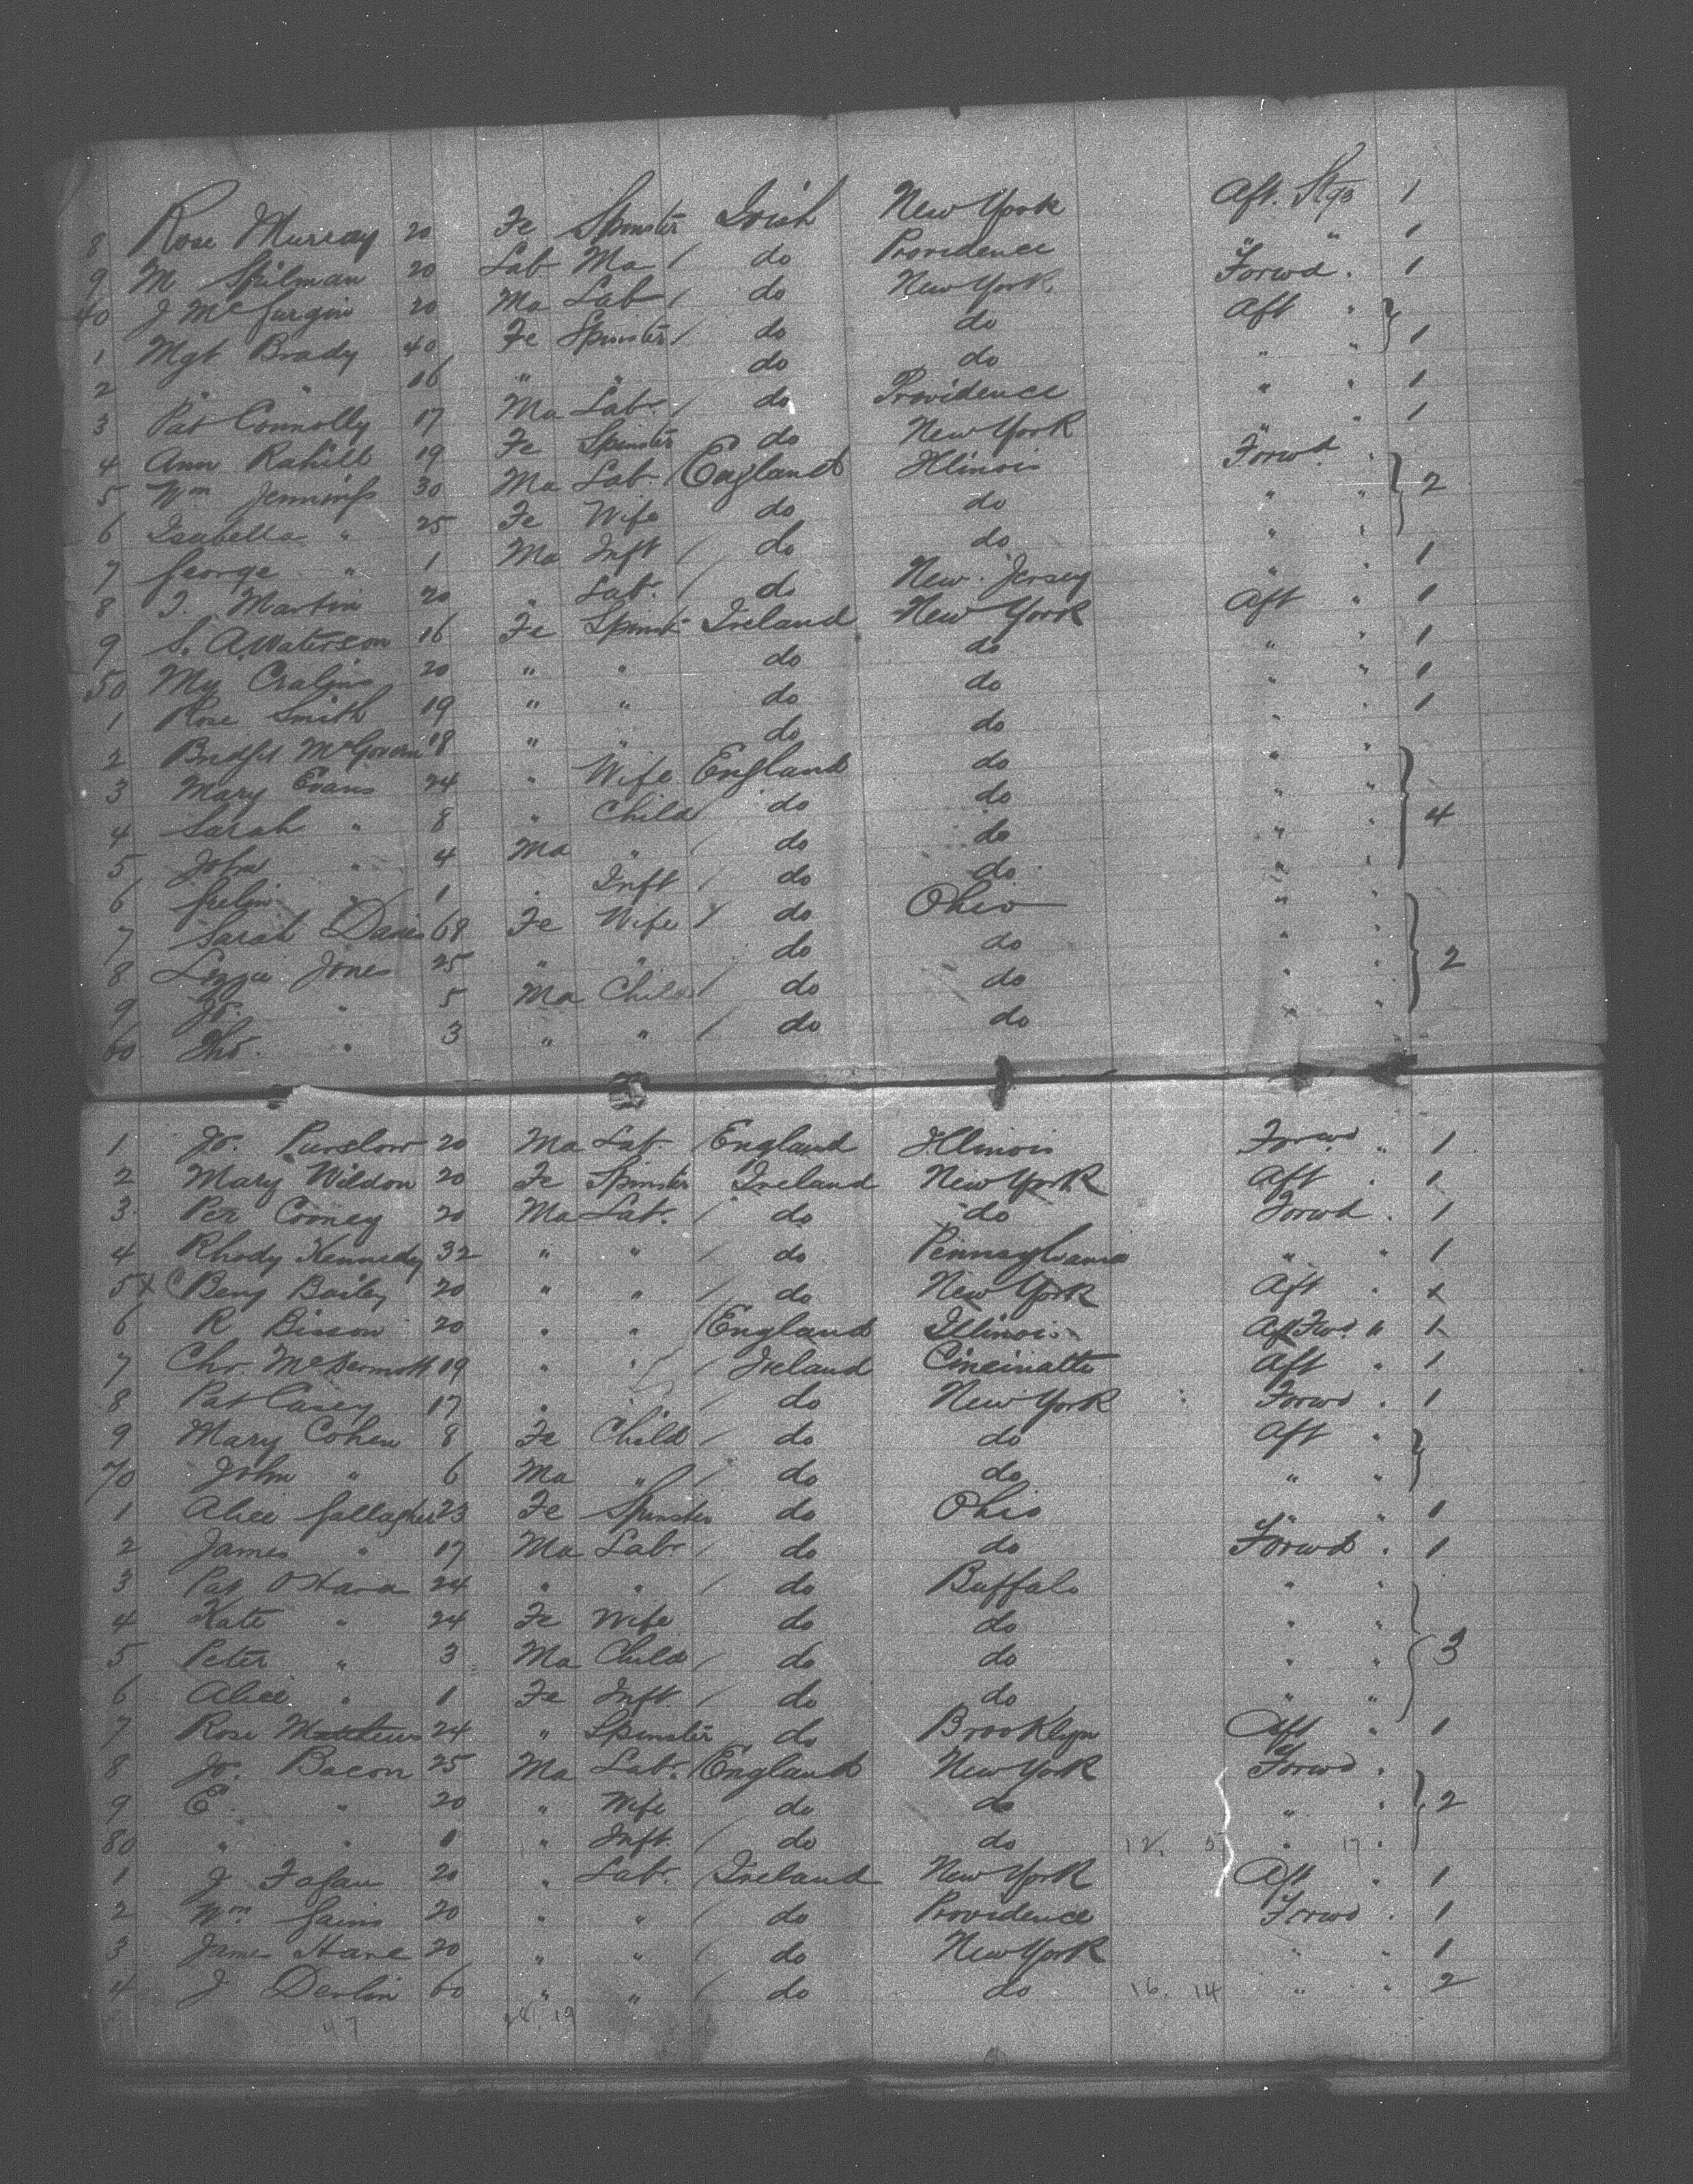 8 Rose Murray 20 Fe Spinster Irish New York Aft. Stge 1
9 M Spilman 20 Lab Ma / do Providence " " 1
40 J Mc 20 Ma Lab / do New York Forwd . 1
1 Mgt Brady 40 Fe Spinster / do do Aft "
2 " " 16 " " do do " " 1
3 Pat Connolly 17 Ma Lab. / do Providence " " 1
4 Ann Rahill 19 Fe Spinster do New York " " 1
5 Wm Jennings 30 Ma Lab. / England Illinois Forwd . 2
6 Isabella " 25 Fe Wife do do " "
7 George " 1 Ma Inft / do do " "
8 J. Martin 20 " Lab. / do New. Jersey " " 1
9 S. A. Waterson 16 Fe Spinst Ireland New York Aft " 1
50 My 20 " " do do " " 1
1 Rose Smith 19 " " do do " " 1
2 Bridgt McGovern 18 " " do do " " 1
3 Mary Evans 24 " Wife England do " "
4 Sarah " 8 " Child do do " " 4
5 John " 4 Ma " / do do " "
6 " 1 " Inft / do do " "
7 Sarah Davis 68 Fe Wife / do Ohio " "
8 Lizzie Jones 25 " " do do " " 2
9 Jo. " 5 Ma Child / do do " "
60 Tho. " 3 " " / do do "
1 Jo. Purslow 20 Ma Lab. / England Illinois Forwd " 1
2 Mary Wildon 20 Fe Spinster Ireland New York Aft . 1
3 Per Cooney 20 Ma Lab. / do do Forwd . 1
4 Rhody Kennedy 32 " " / do Pennsylvania " " 1
5 x Benj Bailey 20 " " / do New York Aft . x
6 R Bisson 20 " " / England Illinois Aft Fwd. " 1
7 Chr. McDermott 19 " " / Ireland Cincinatti Aft " 1
8 Pat Casey 17 " " / do New York Forwd . 1
9 Mary Cohen 8 Fe Child / do do Aft "
70 John " 6 Ma " / do do " "
1 Alice Gallagher 23 Fe Spinster do Ohio " " 1
2 James " 17 Ma Lab. / do do Forwd . 1
3 Pat OHara 24 " " / do Buffalo " "
4 Kate " 24 Fe Wife do do " "
5 Peter " 3 Ma Child / do do " " 3
6 Alice " 1 Fe Inft / do do " "
7 Rose Matthews 24 " Spinster do Brooklyn Aft " 1
8 Jo. Bacon 25 Ma Lab. / England New York Forwd .
9 E. " 20 " Wife do do " " 2
80 " " 1 " Inft. / do do 12. 5 " 17 "
1 J Fagan 20 " Lab. / Ireland New York Aft . 1
2 Wm. Gains 20 " " / do Providence Forwd . 1
3 James Hare 20 " " / do New York " " 1
4 J Devlin 60 " " / do do 16. 14 " " 2
47 19